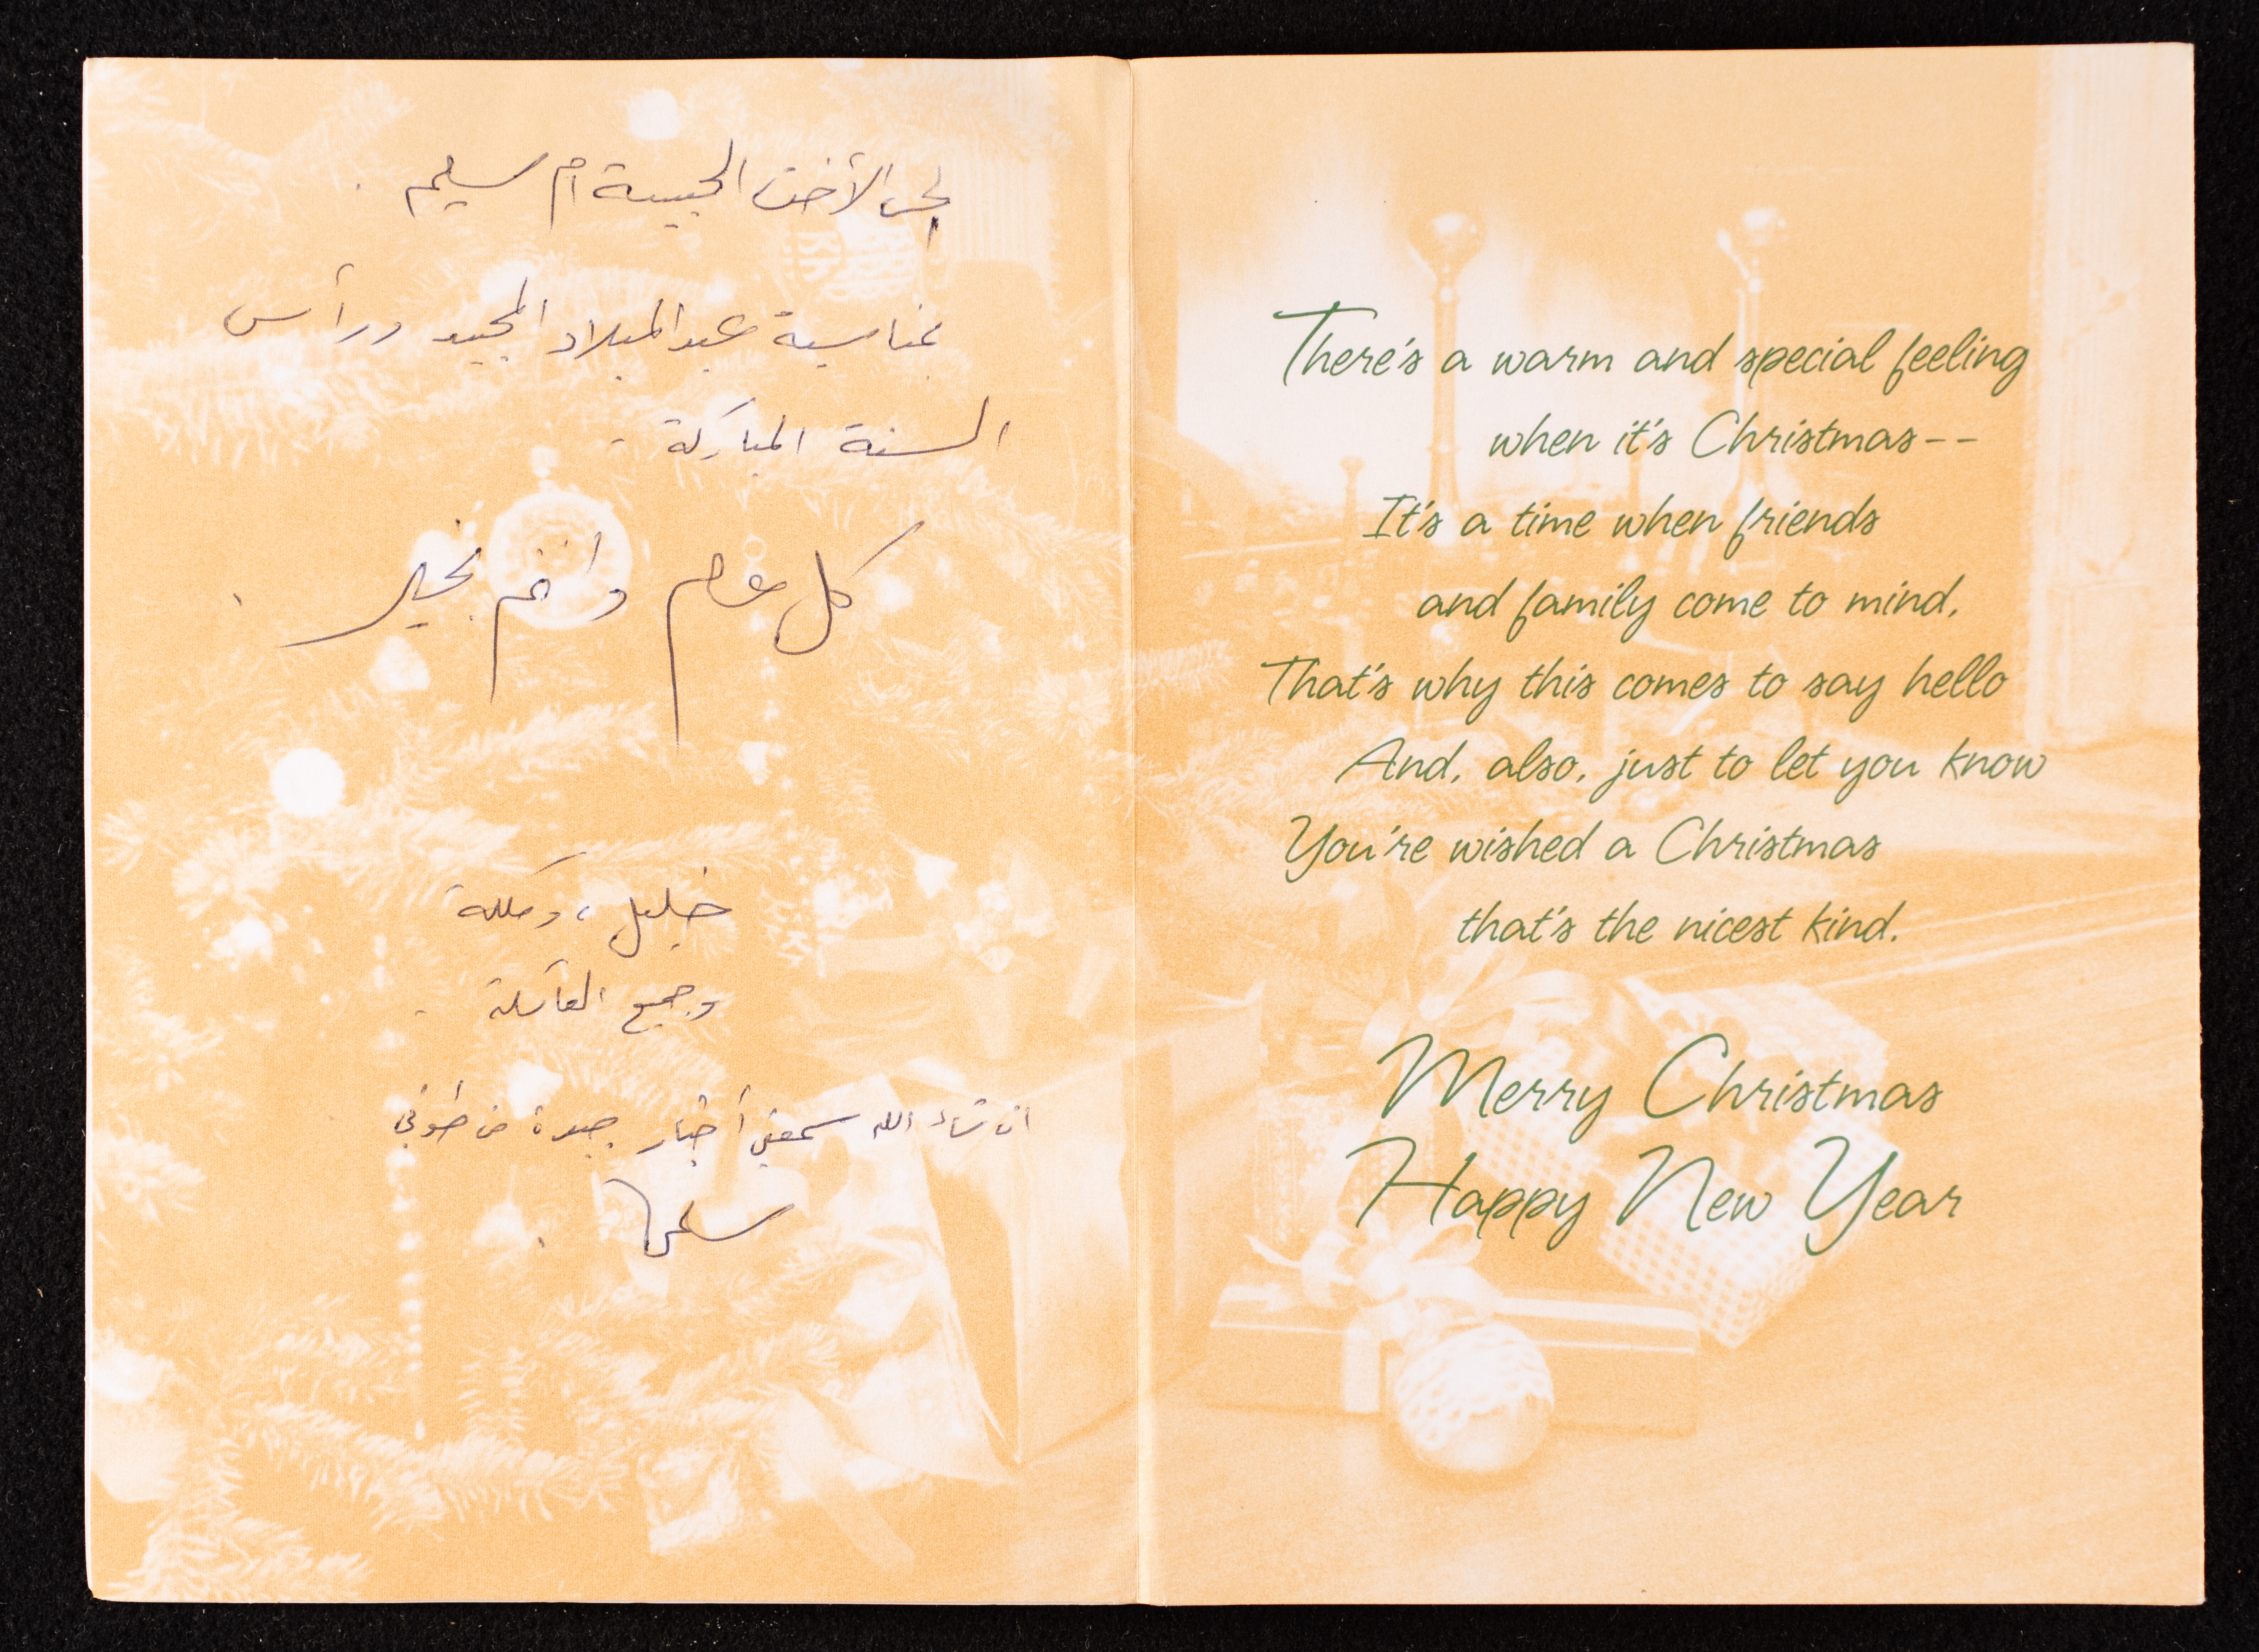 إلى الأخت الحبيبة أم سليم .
بمناسبة عيد الميلاد المجيد ورأس
السنة المباركة -
كل عام وانتم بخير .
خليل ، وملكة
وجميع العائلة .
ان شاء الله سمعتي أخبار جيدة من طوني
سلمى .
There's a warm and special feeling
when it's Christmas--
It's a time when friends
and family come to mind,
That's why this comes to say hello
And, also, just to let you know
You're wished a Christmas
that's the nicest kind.
Merry Christmas
Happy New Year